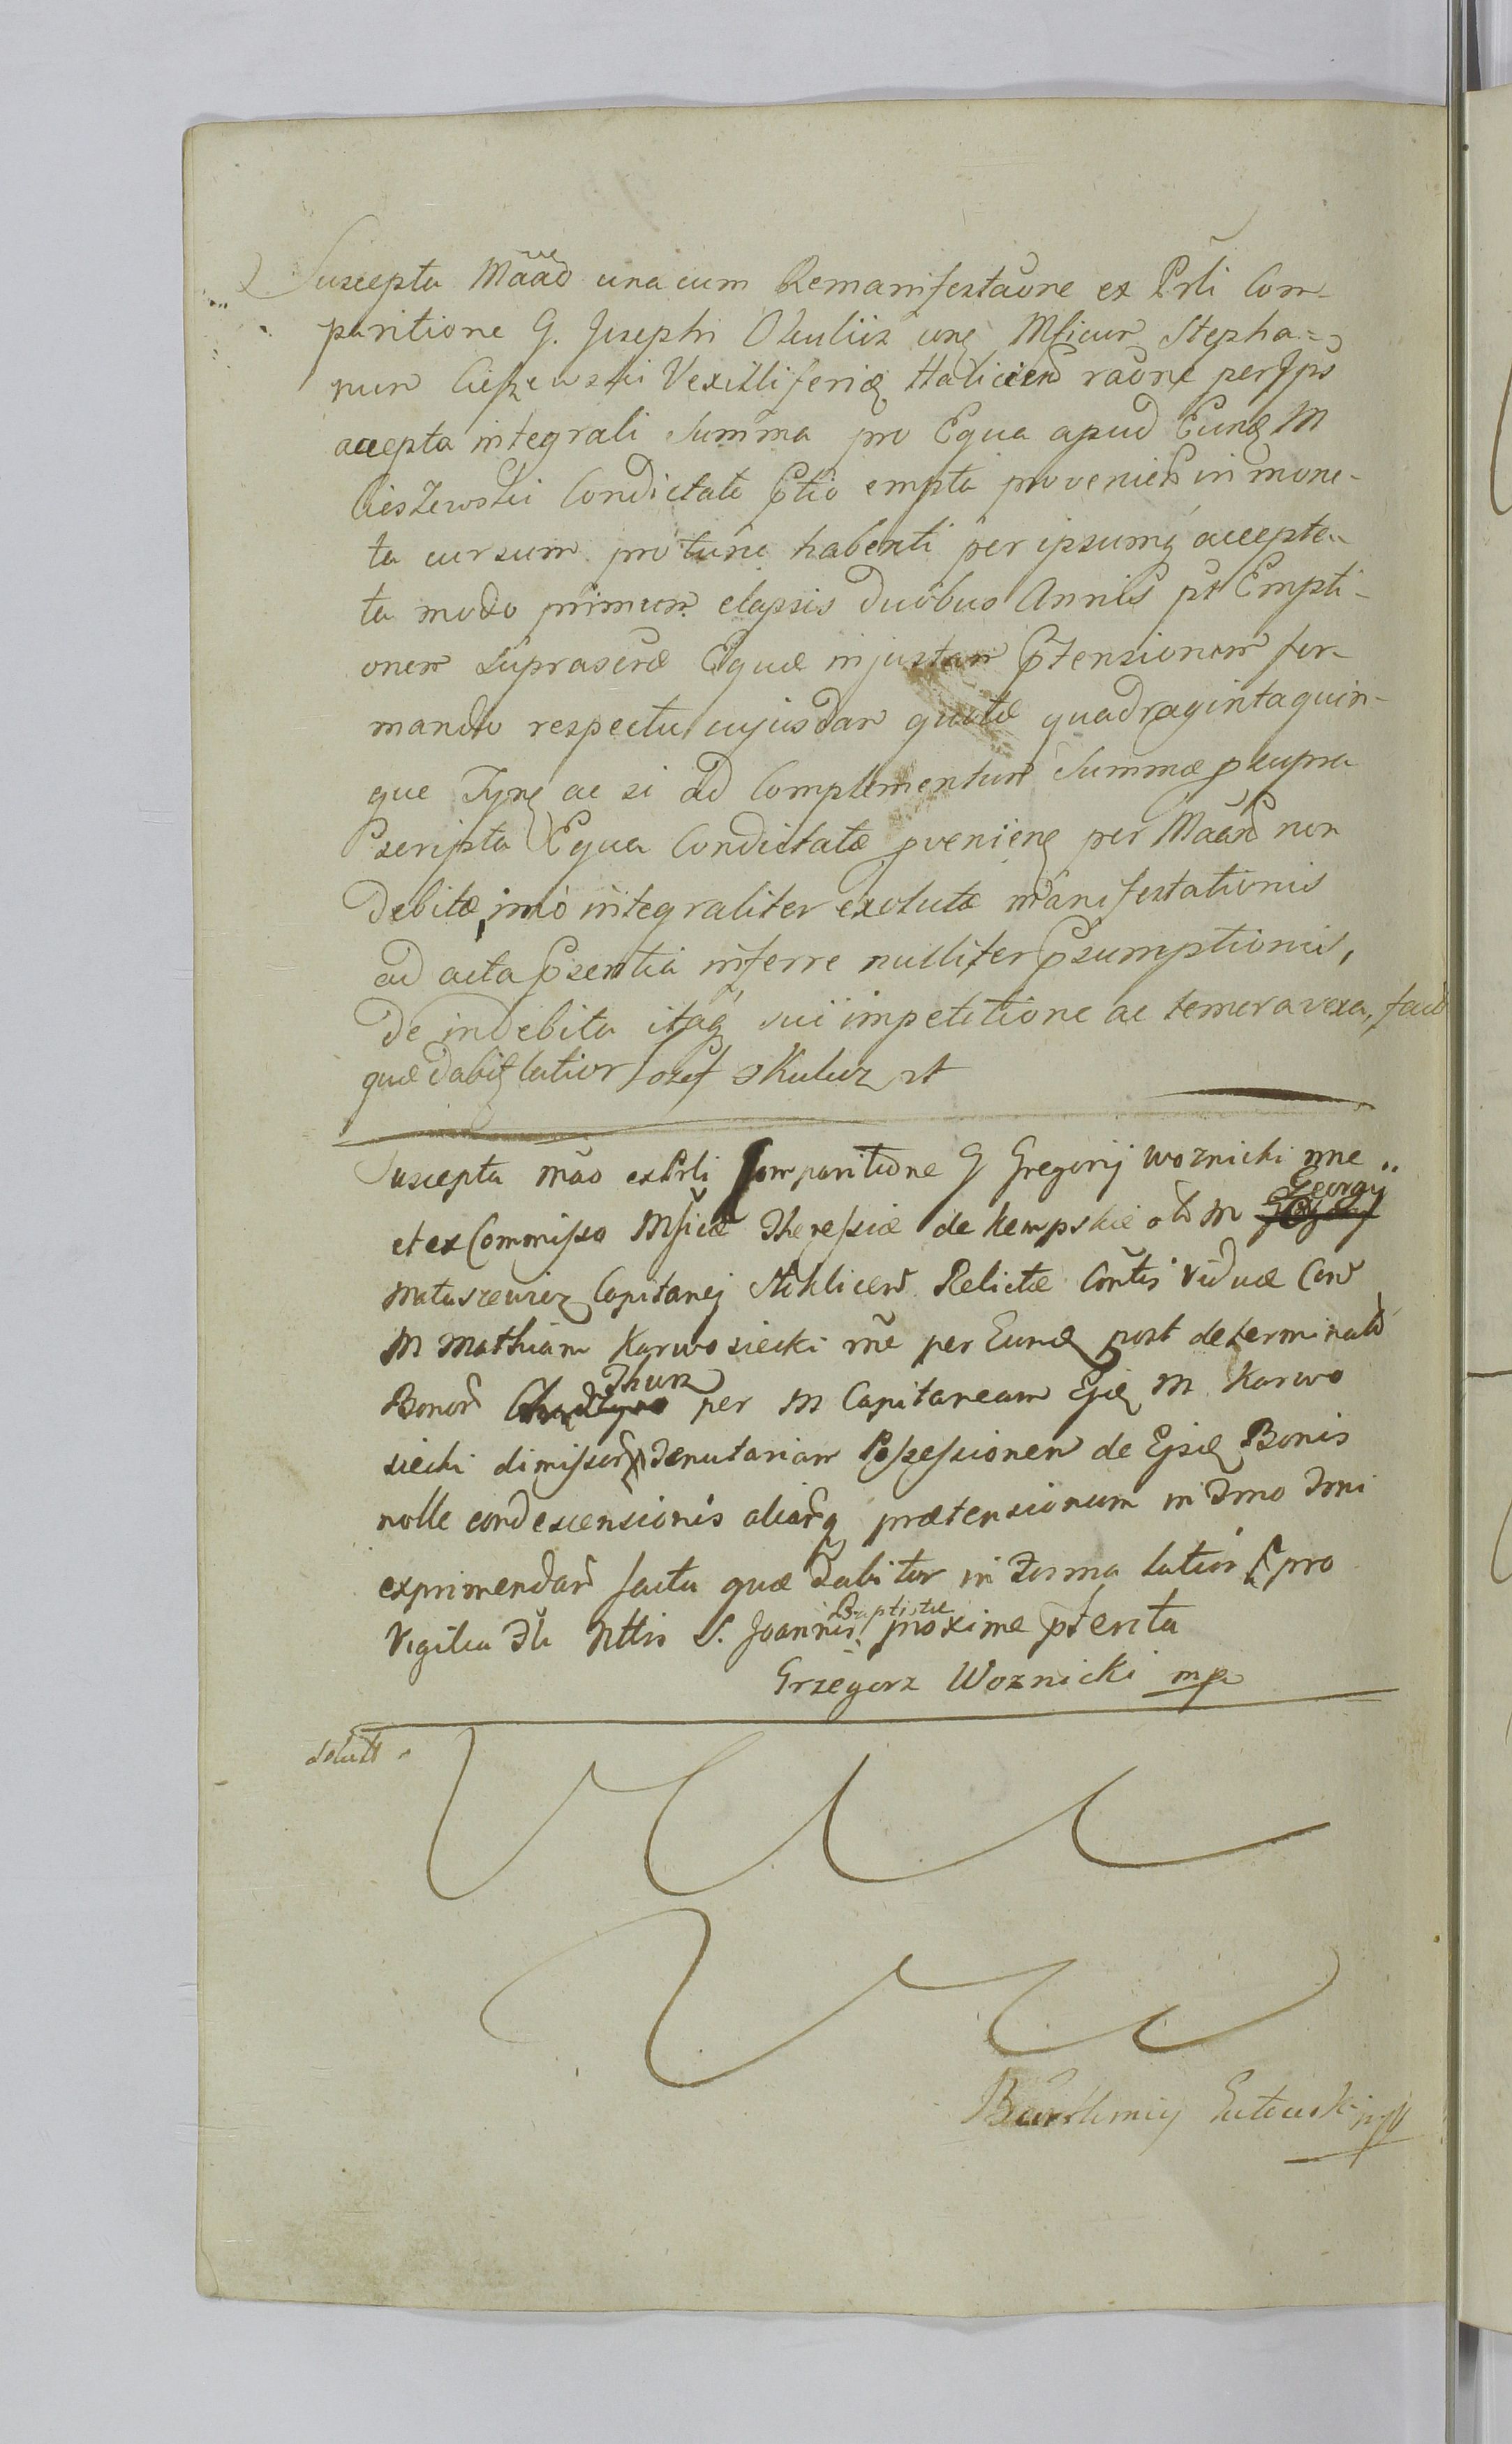 Suscepta Mãao una cum Remanifestaõne ex Prli Com-
paritione G. Josephi Okulicz cong Mficum Stepha-
num Cieszewski Vexilliferid Haliciens raõne per Ips
accepta integrali Summa pro Equa apud Eund M
Cieszewski Condictato Ptio empta provenien in mone-
ta cursum pro tunc habenti per ipsumq accepta-
ta modo primum elapsis duobus Annis pt Empti-
onem suprascræ Equæ injustam Ptensionem for-
mando respectu cujusdam quotæ quadragintaquin-
que Tynf ac si ad Complementum Summæ p supra
scripta Equa Condictatæ pvenieng per Maand non
debitæ, imo integraliter exolutæ manifestationis
ad acta Psentia inferre nulliter Psumptionis,
de indebita itaq sui impetitione ac temera vexa, facta
quæ dabit latior Jozef Okulicz
Suscepta mão ex Prli Comparitione G Gregorij Woznicki nne
et ex Commisso Mficæ Theresiæ de Kempskie o M Georgij
Matuszewicz Capitanej Stoklicen Relictæ Contis Viduæ Con
M Mathiam Karwosiecki rñe per Eund post determinatõ
Bonor Thurz per M Capitaneam Ejd M Karwo
siecki dimissor Tenutariam Possessionem de Ejsd Bonis
nolle condescensionis aliarq prætensionum in Tmo Toni
exprimendar facta quæ dabitur in Forma latior Pro
Vigilia Fti Nttis S. Joannis Baptistæ proxime pterita
Grzegorz Woznicki mp
solutt